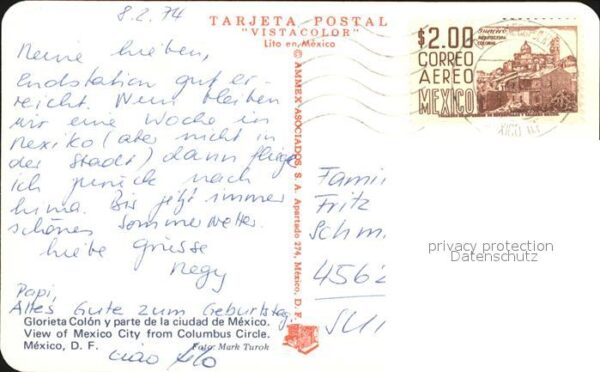 8.2.74
TARJETA POSTAL
"VISTACOLOR"
Lito en México
Meine Lieben,
Endstation gut er-
reicht. Nun bleiben
wir eine Woche in
Mexiko (aber nicht in
der Stadt) dann fliege
ich zurück nach
Lima. Bis jetzt immer
schönes Sommerwetter.
Liebe Grüsse
Megy
Papi,
Alles Gute zum Geburtstag.
Glorieta Colón y parte de la ciudad de México.
View of Mexico City from Columbus Circle.
México, D. F.
Foto: Mark Turok
ciao
AMMEX ASOCIADOS, S. A. Apartado 274, México, D. F.
$2.00
CORREO
AEREO
MEXICO
ARQUITECTURA
COLONIAL
Famil
Fritz
Schm
4562
privacy protection
Datenschutz